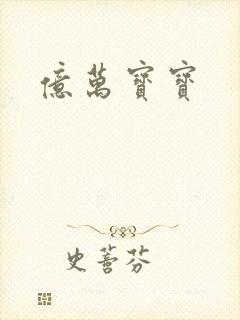 億萬寶寶
史薈芬